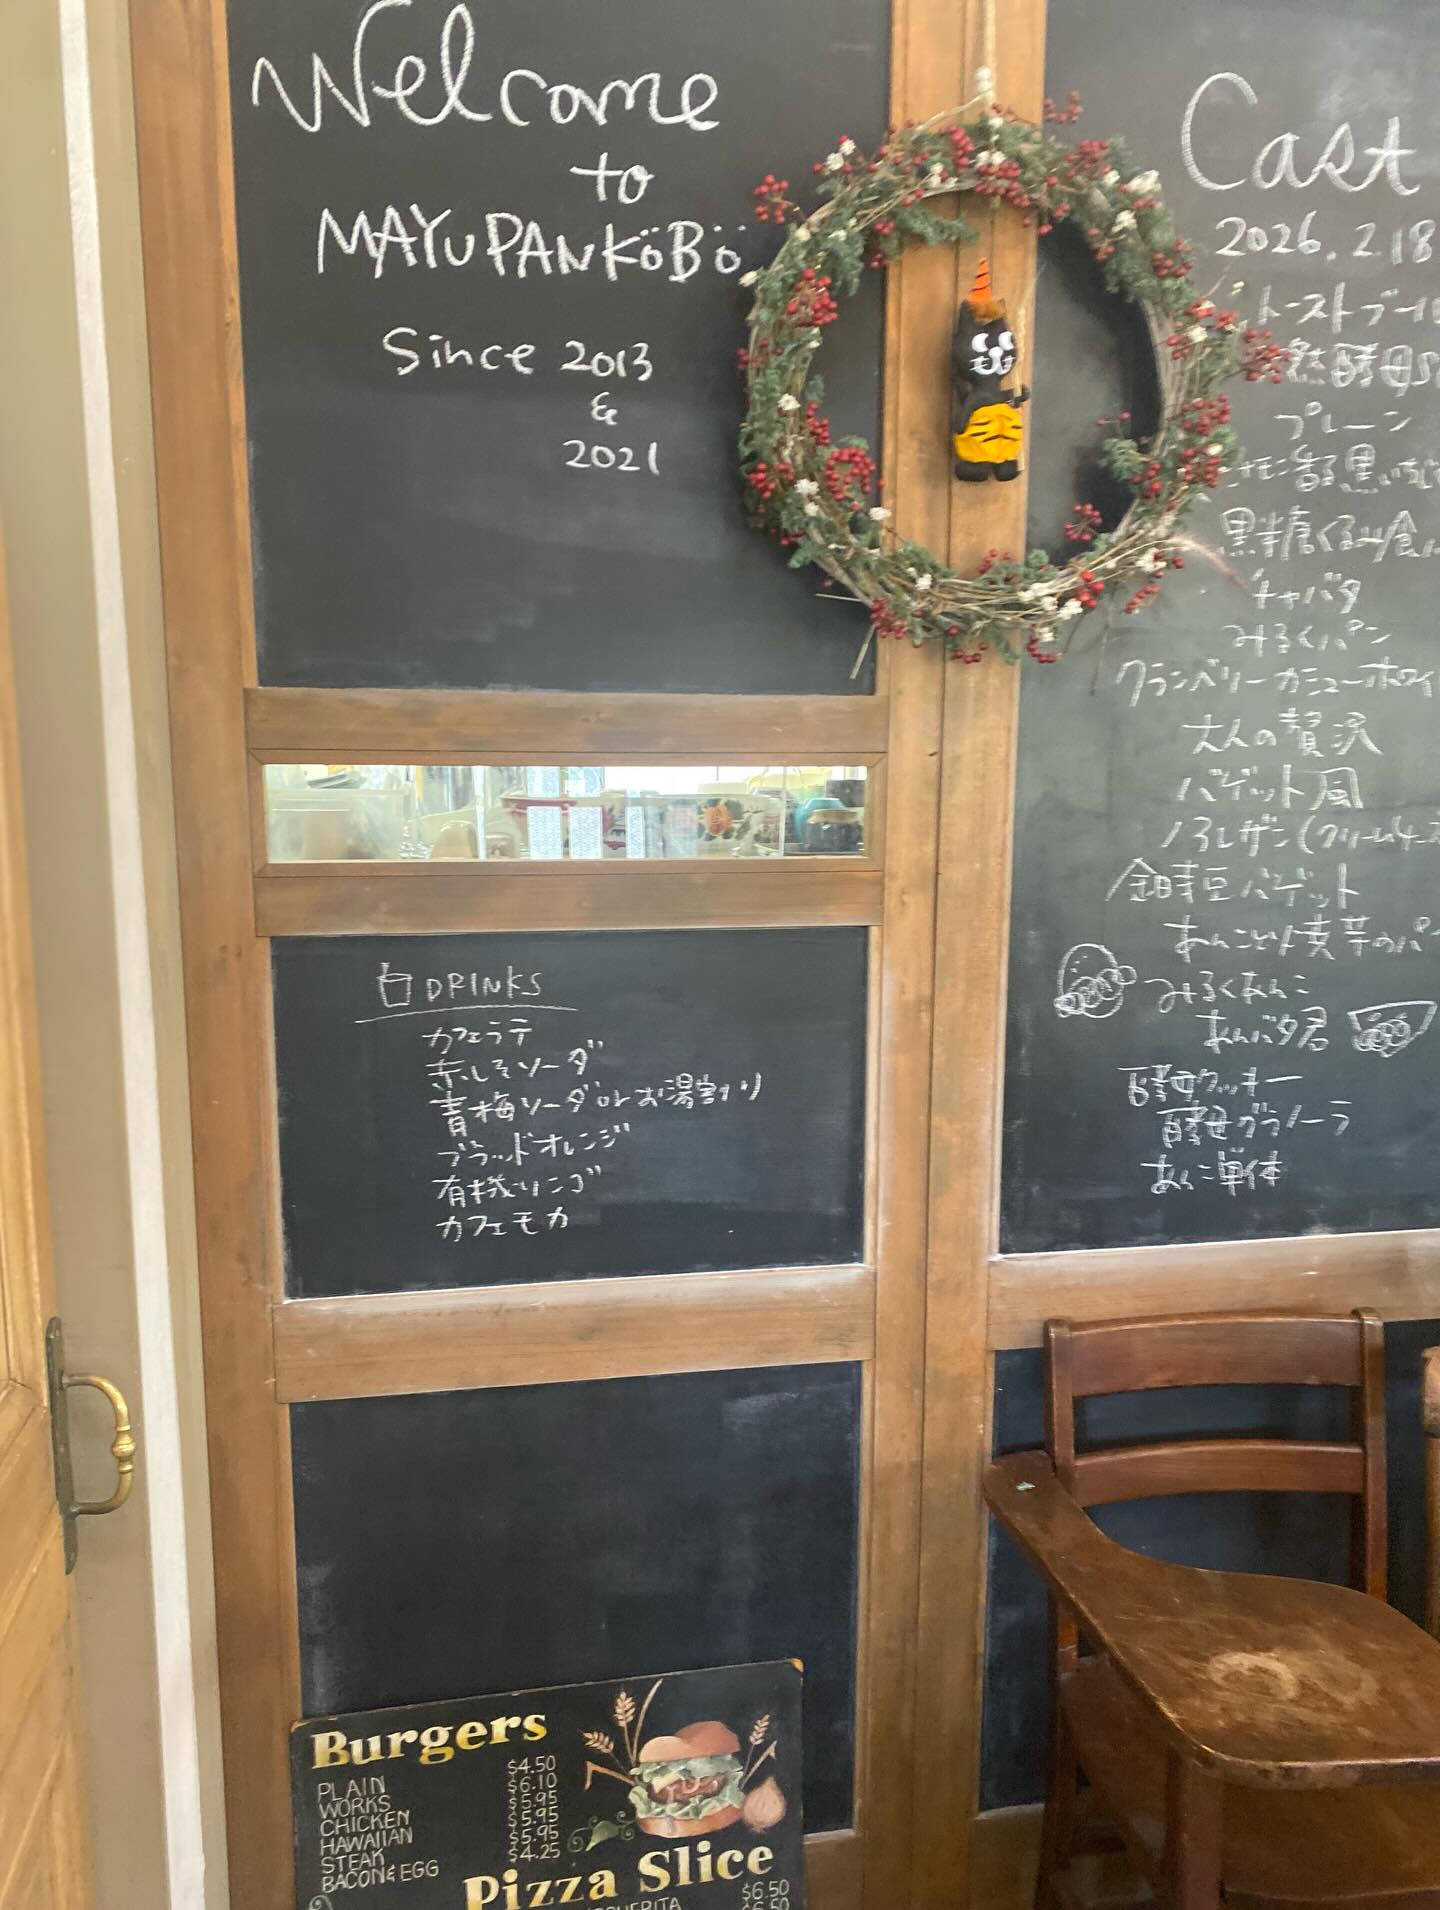 Welcome
to
MAYUPANKöBö
Since 2013
&
2021
DRINKS
カフェラテ
赤しそソーダ
青梅ソーダorお湯割り
ブラッドオレンジ
有機リンゴ
カフェモカ
Cast
2026.2.18
トーストブール
酵母
プレーン
香る黒いちじく
黒糖くるみ食パ
チャバタ
みるくパン
クランベリーカシューホワイ
大人の贅沢
バゲット風
ノアレザン(クリームチーズ
金時豆バゲット
あんこと焼芋のパ
みるくあんこ
あんバタ君
酵母クッキー
酵母グラノーラ
あんこ単体
Burgers
PLAIN $4.50
WORKS $6.10
CHICKEN $5.95
HAWAIIAN $5.95
STEAK $5.95
BACON & EGG $4.25
Pizza Slice
$6.50